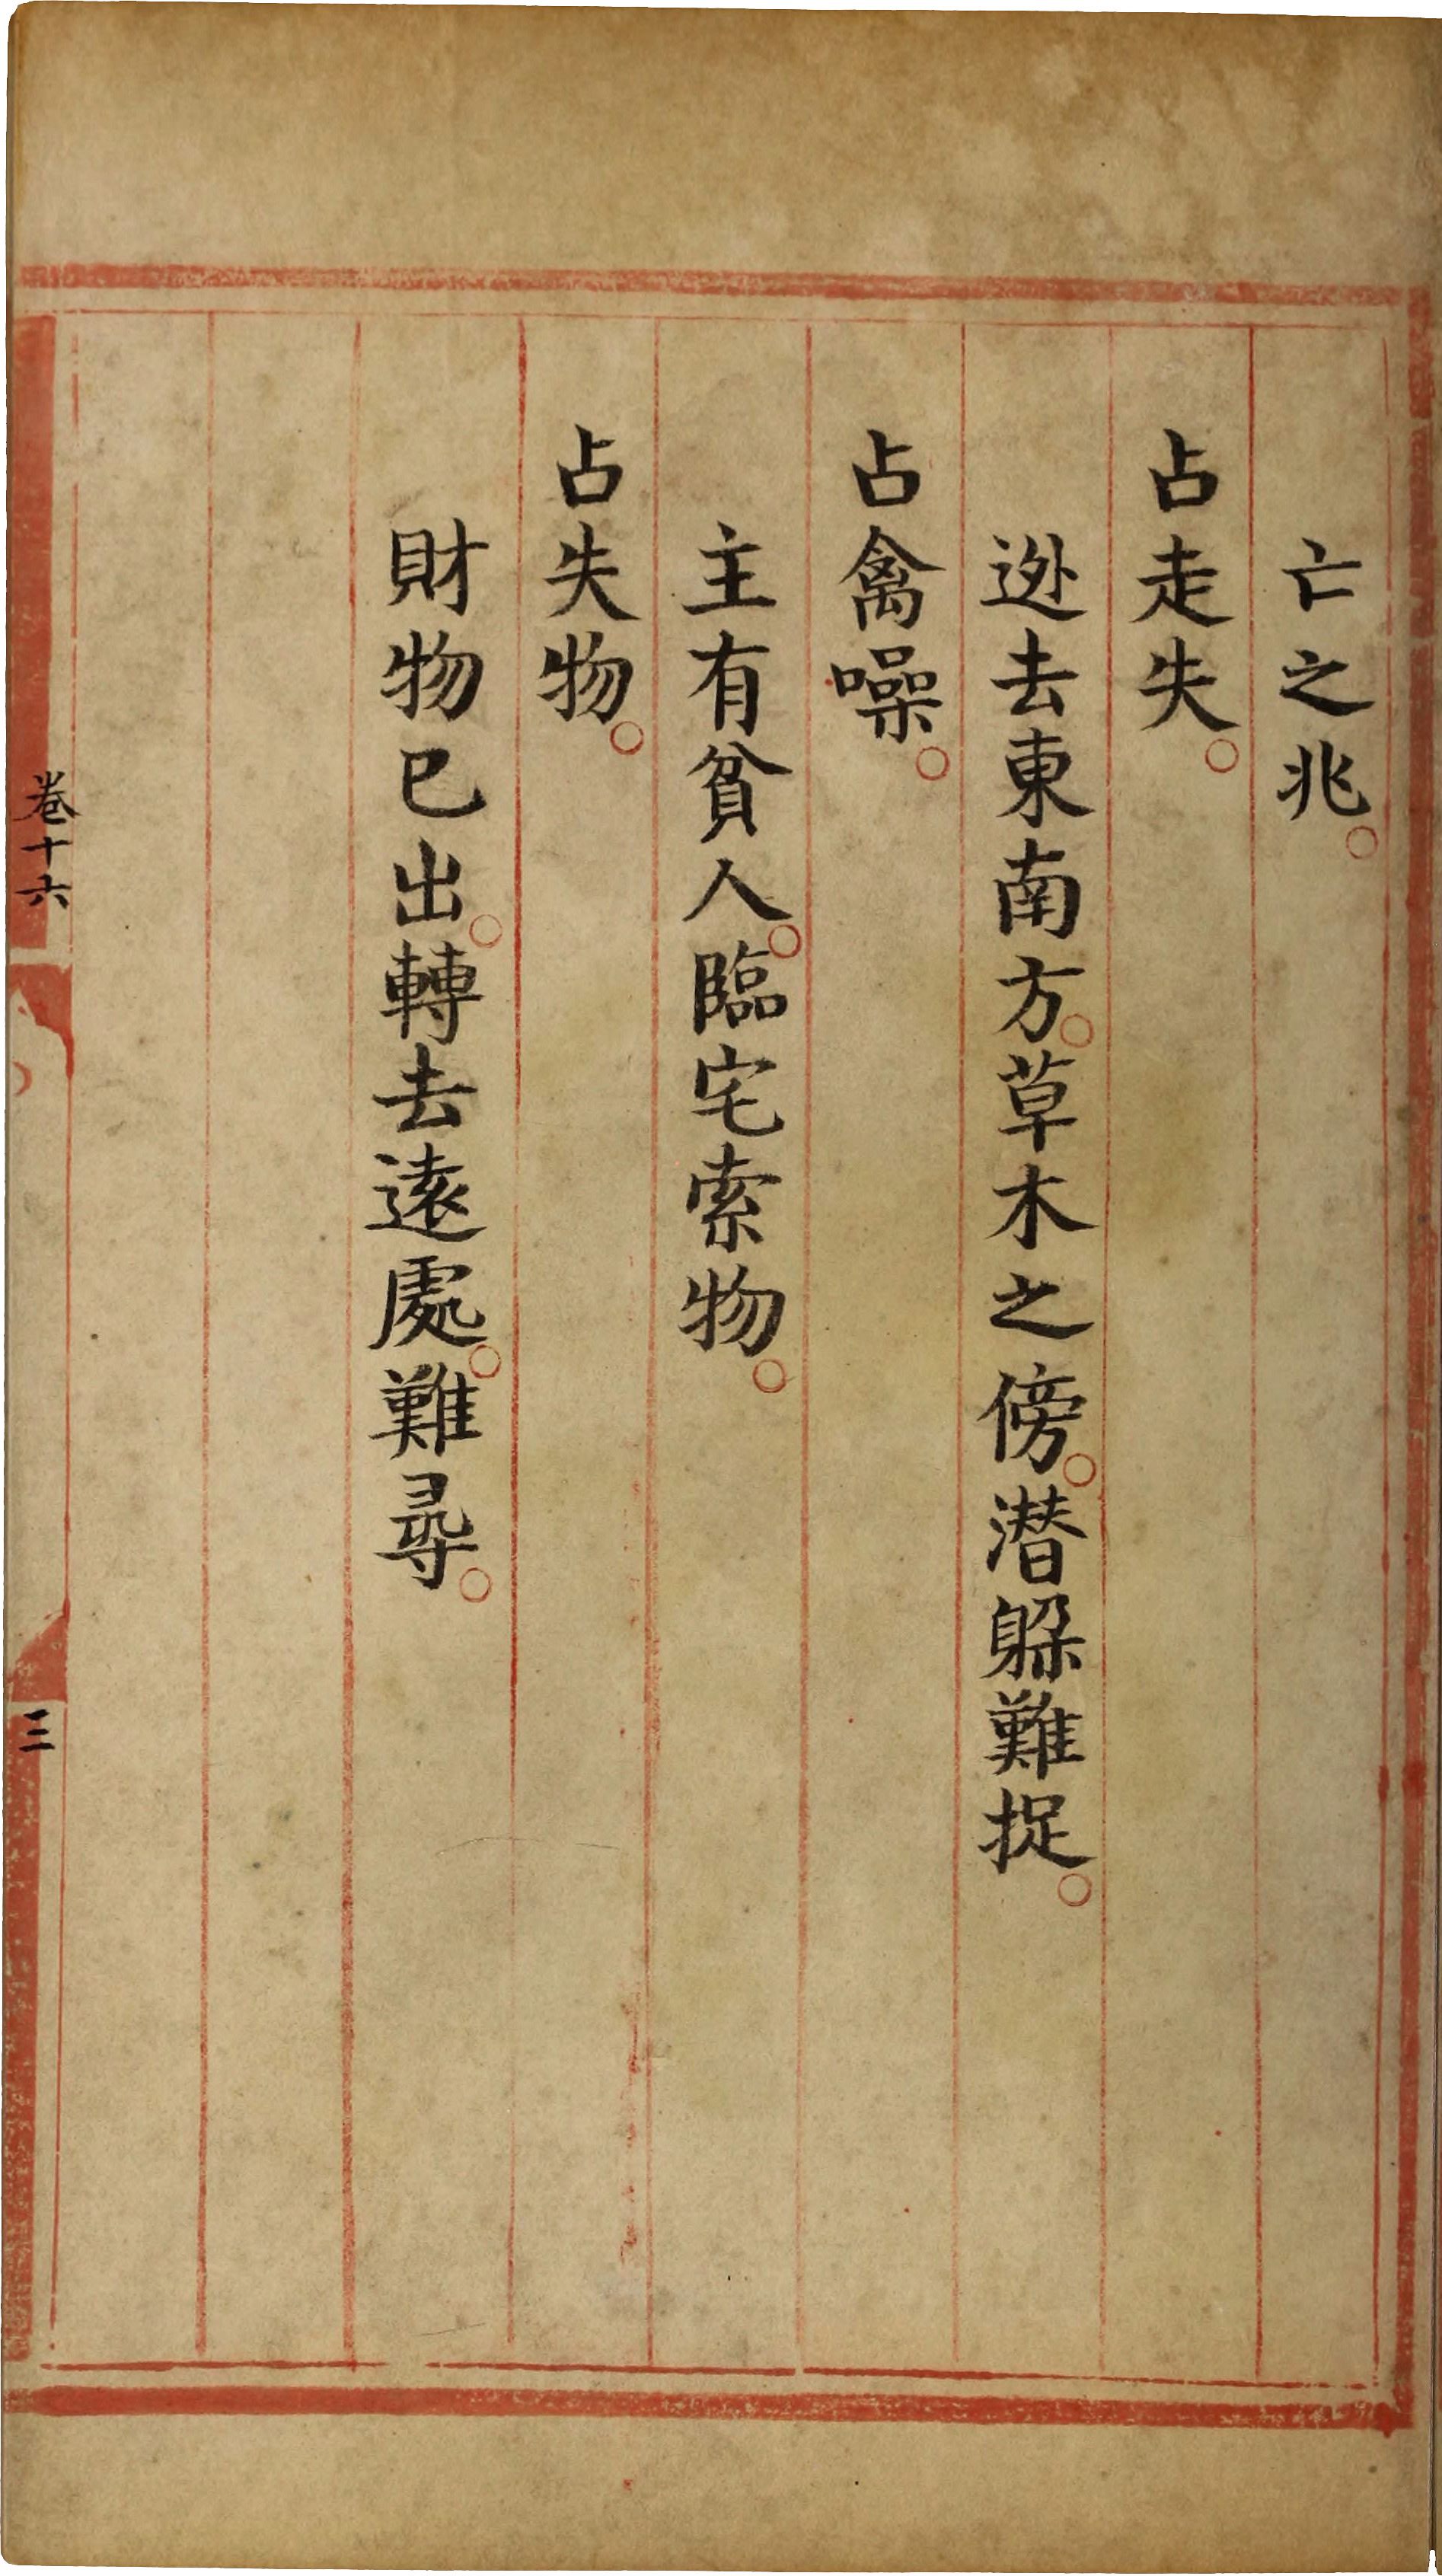 亡之兆。
占走失。
逊去東南方。草木之傍。潜躲難捉。
占禽噪。
主有貧人。臨宅索物。
占失物。
財物已出。轉去遠處。難尋。
卷十六
三